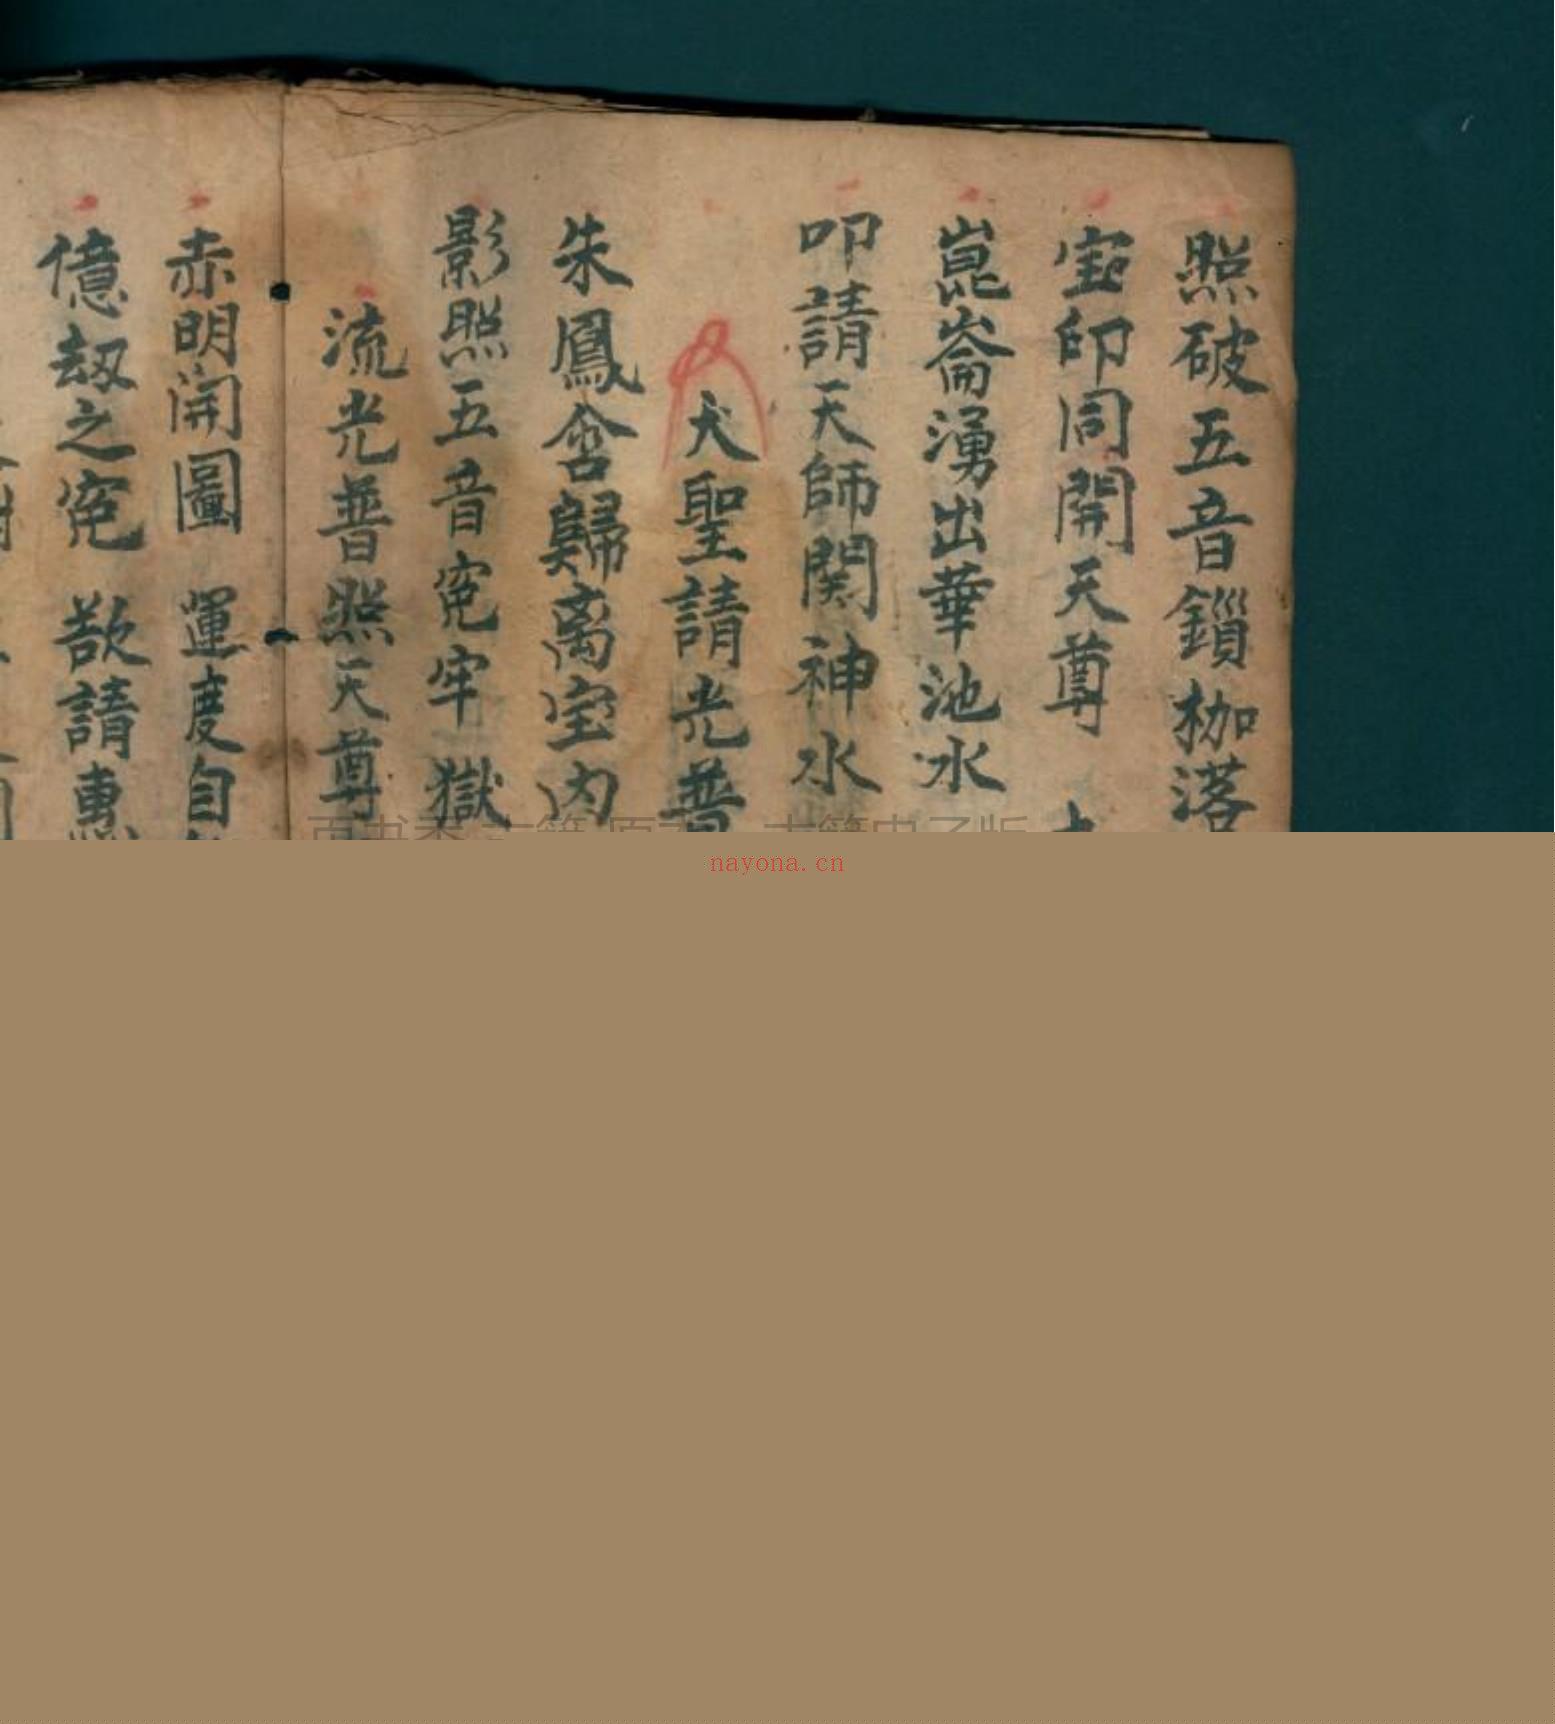 照破五音鎖枷落
宝印同開天尊
崑崙湧出華池水
叩請天師関神水
犬聖請光普
朱鳳含歸离宝内
影照五音寃牢獄
流光普照天尊
赤明開圖 運度自
億劫之寃 敨請惠
nayona.cn